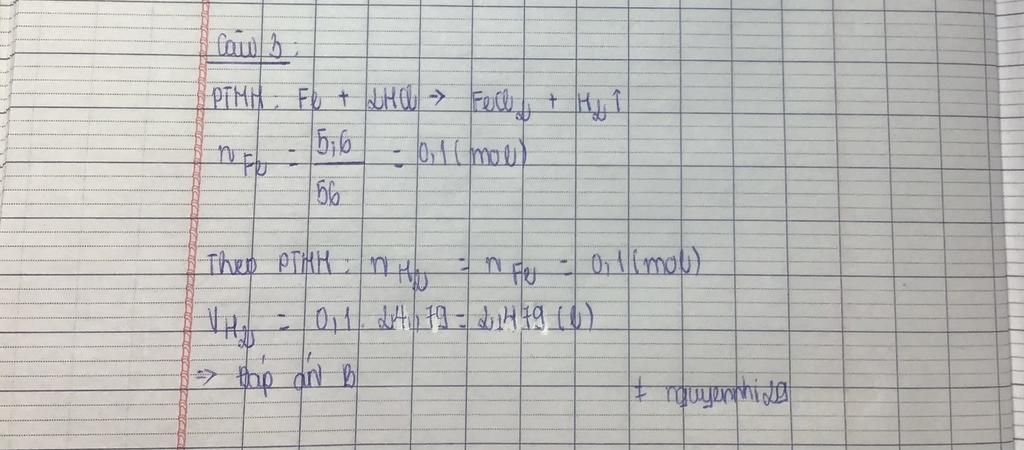 Câu 3:
PTHH: Fe + 2HCl → FeCl₂ + H₂↑
n Fe = 5,6 / 56 = 0,1 (mol)
Theo PTHH: n H₂ = n Fe = 0,1 (mol)
V H₂ = 0,1 . 24,79 = 2,479 (l)
⇒ Đáp án B
t nguyennhi29